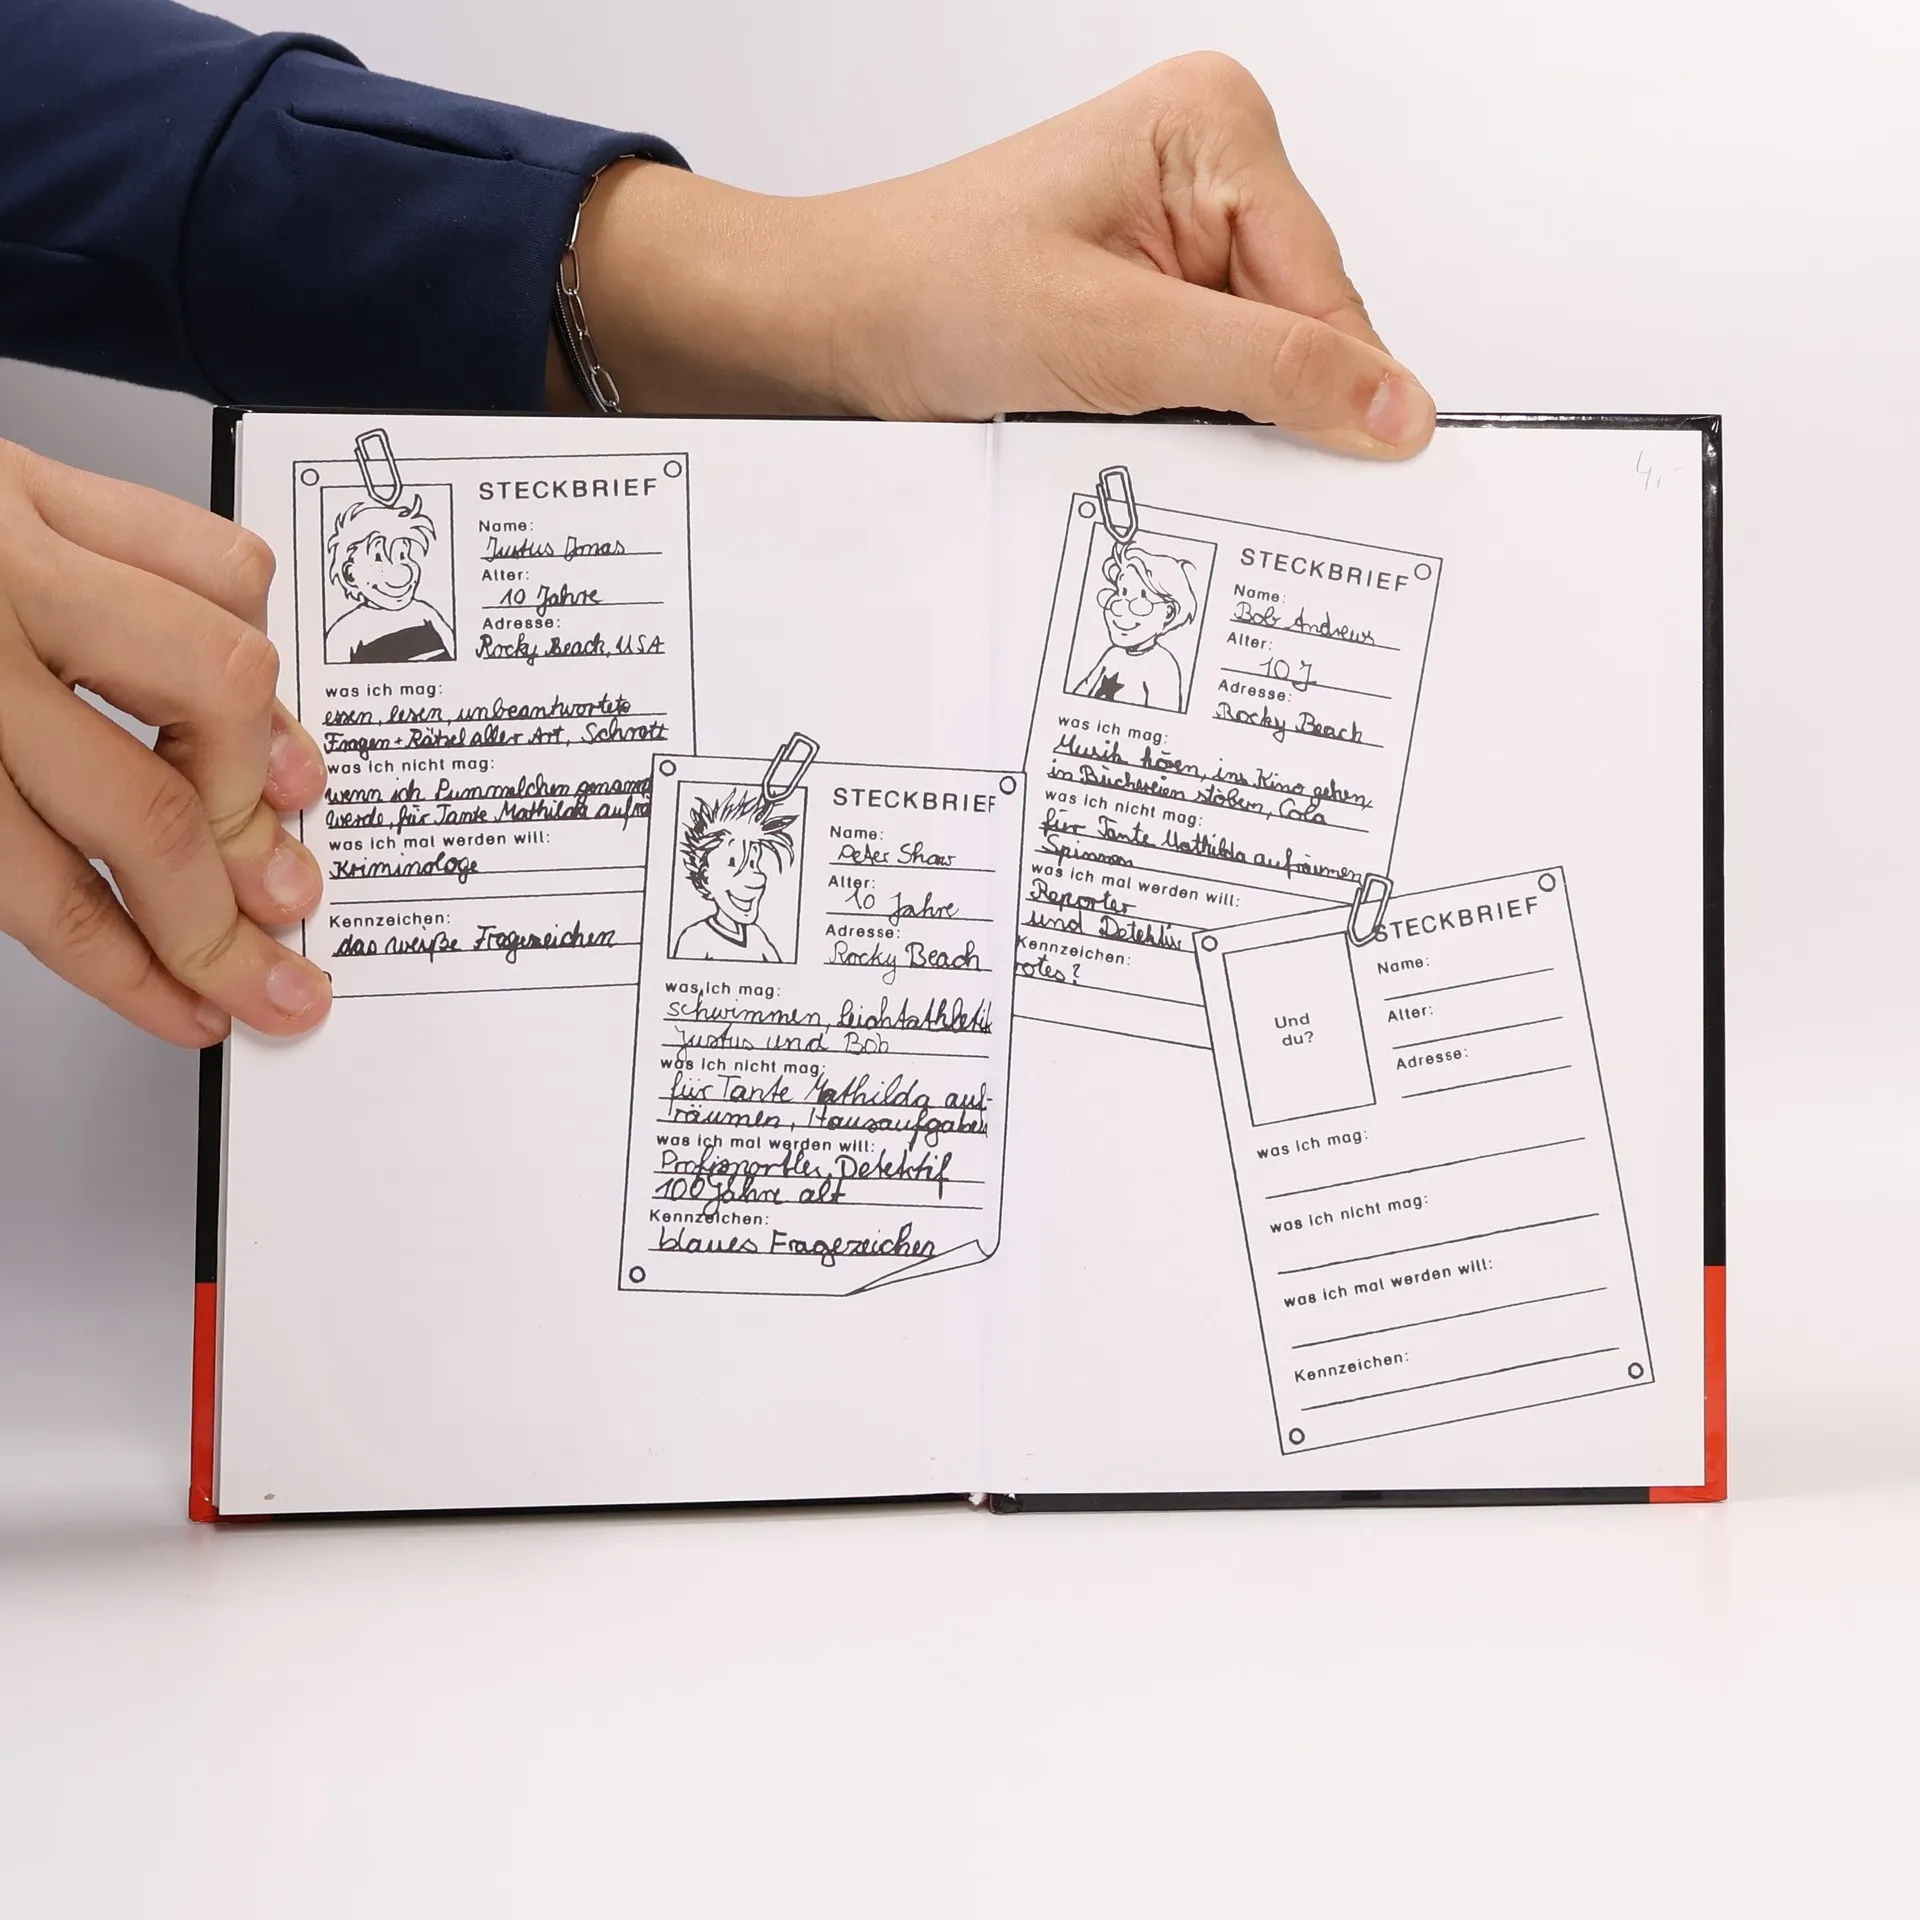 STECKBRIEF
Name:
Justus Jonas
Alter:
10 Jahre
Adresse:
Rocky Beach, USA
was ich mag:
essen, lesen, unbeantwortete
Fragen + Rätsel aller Art, Schrott
was ich nicht mag:
wenn ich Pummelchen genannt
werde, für Tante Mathilda aufrä
was ich mal werden will:
Kriminologe
Kennzeichen:
das weiße Fragezeichen
STECKBRIEF
Name:
Peter Shaw
Alter:
10 Jahre
Adresse:
Rocky Beach
was ich mag:
schwimmen, Leichtathletik
Justus und Bob
was ich nicht mag:
für Tante Mathilda auf-
räumen, Hausaufgaben
was ich mal werden will:
Profisportler, Detektif
100 Jahre alt
Kennzeichen:
blaues Fragezeichen
STECKBRIEF
Name:
Bob Andrews
Alter:
10 J
Adresse:
Rocky Beach
was ich mag:
Musik hören, ins Kino gehen,
in Büchereien stöbern, Cola
was ich nicht mag:
für Tante Mathilda aufräumen,
Spinnen
was ich mal werden will:
Reporter
und Detektiv
Kennzeichen:
rotes ?
STECKBRIEF
Und
du?
Name:
Alter:
Adresse:
was ich mag:
was ich nicht mag:
was ich mal werden will:
Kennzeichen:
4,-